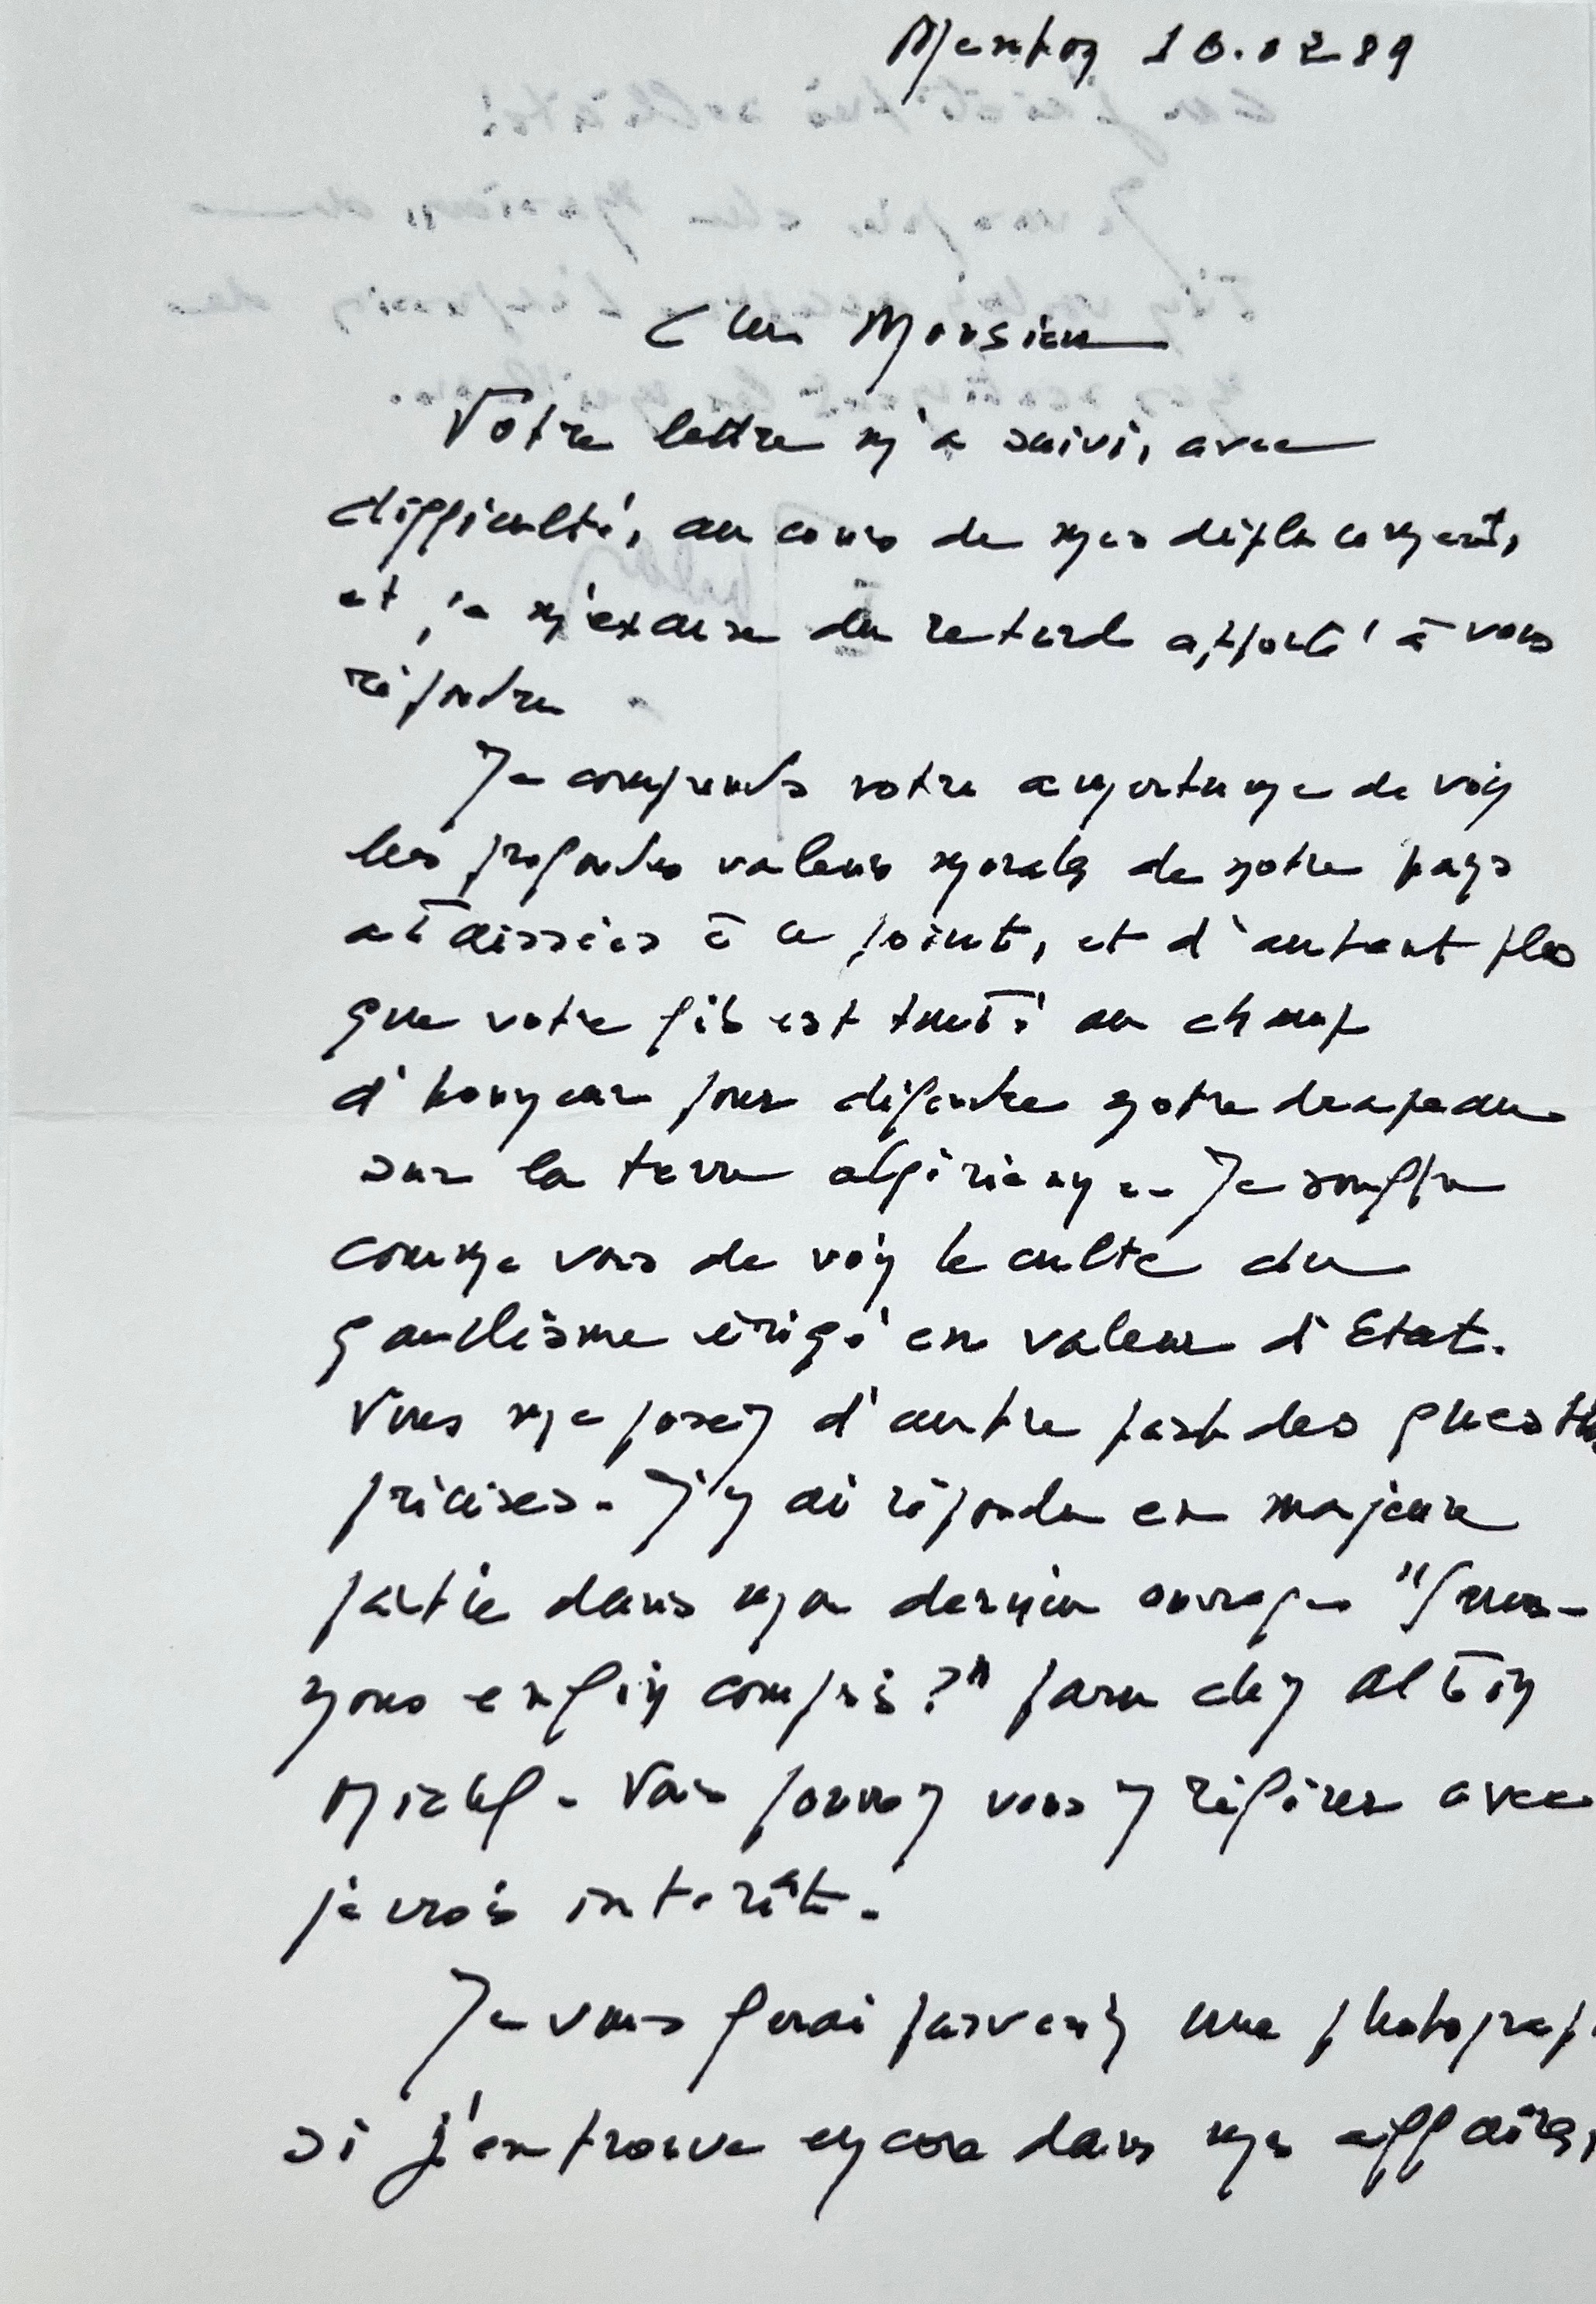 Menton 10.02 89
Cher Monsieur
Votre lettre m'a suivi, avec
difficulté, au cours de mes déplacements,
et je m'excuse du retard apporté à vous
répondre.
Je comprends votre amertume de voir
les profondes valeurs morales de notre pays
abaissées à ce point, et d'autant plus
que votre fils est tombé au champ
d'honneur pour défendre notre drapeau
sur la terre algérienne. Je souffre
comme vous de voir le culte du
gaullisme érigé en valeur d'Etat.
Vous me posez d'autre part des questi
précises. J'y ai répondu en majeure
partie dans mon dernier ouvrage "
nous enfin compris ?" paru chez Albin
Michel. Vous pourrez vous y référer avec
je crois intérêt.
Je vous ferai parvenir une photograp
si j'en trouve encore dans mes affaires,